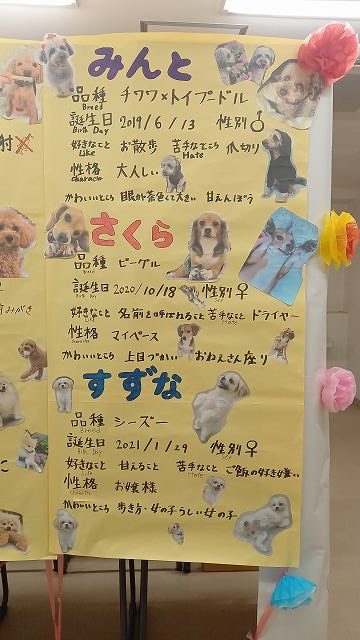 みんと
品種 チワワ×トイプードル
Breed
誕生日 2019/6/13 性別♂
Birth Day
好きなこと お散歩 苦手なところ 爪切り
Like Hate
性格 大人しい
Character
かわいいところ 眼が茶色くて大きい 甘えんぼう
さくら
品種 ビーグル
Breed
誕生日 2020/10/18 性別♀
Birth Day
好きなこと 名前を呼ばれること 苦手なこと ドライヤー
Like Hate
性格 マイペース
Character
かわいいところ 上目づかい おねえさん座り
すずな
品種 シーズー
Breed
誕生日 2021/1/29 性別♀
Birth Day Sex
好きなこと 甘えること 苦手なこと ご飯の好き嫌い
Like Hate
性格 お嬢様
Character
かわいいところ 歩き方・女の子らしい女の子
射
みがき
に